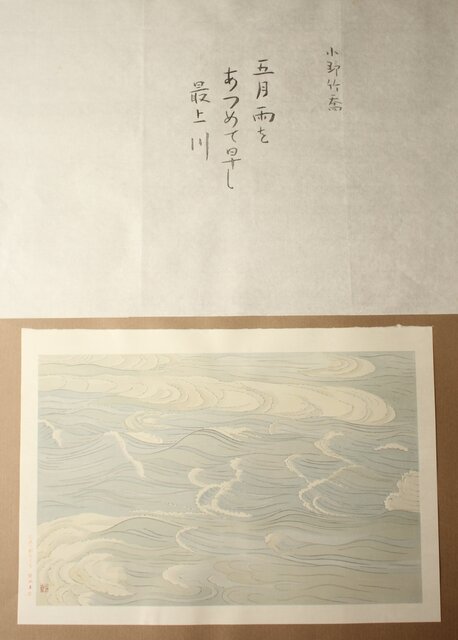 小野竹喬
五月雨を
あつめて早し
最上川